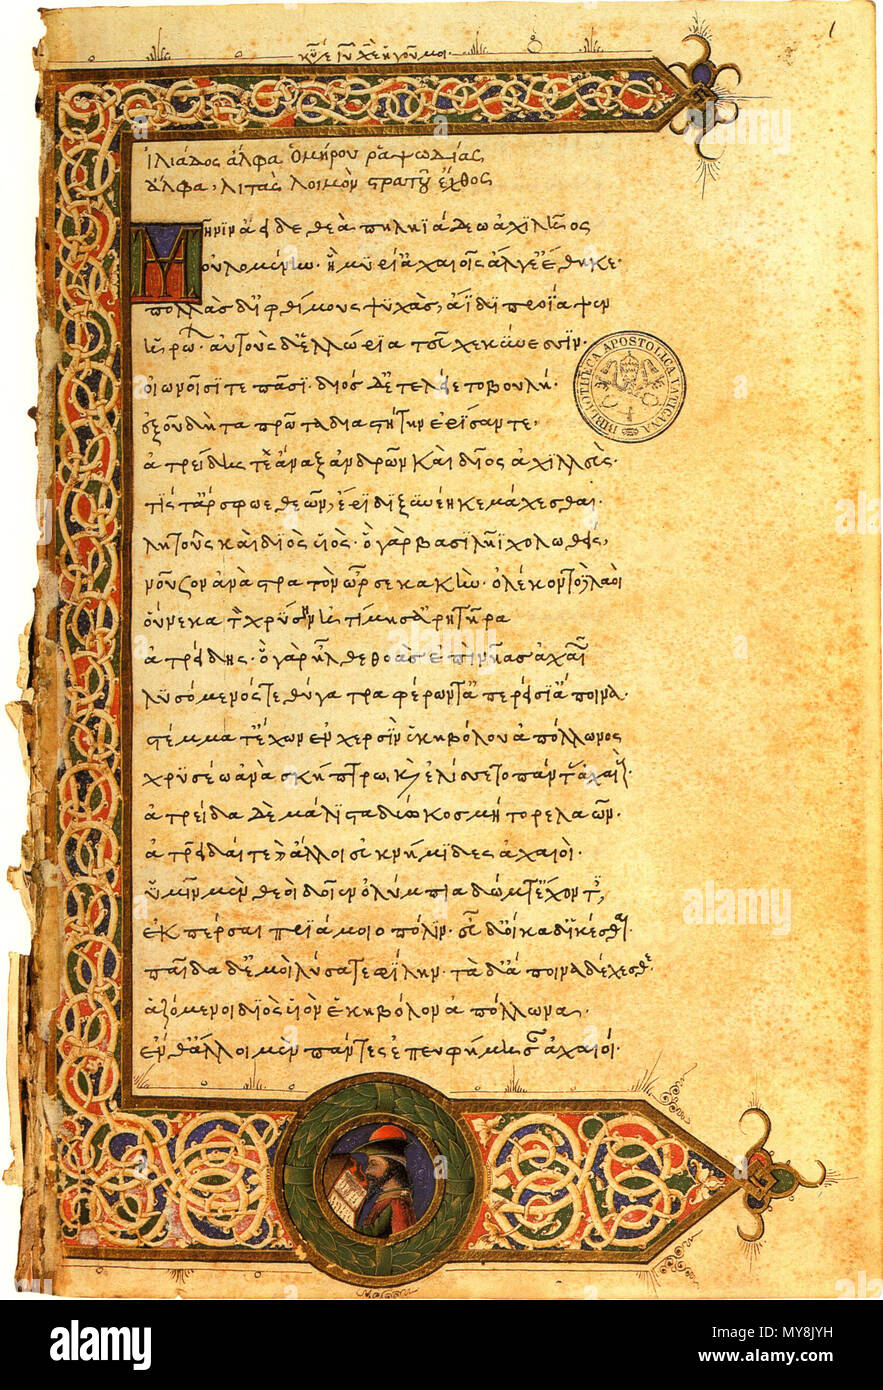 κ(ύρι)ε Ἰ(ησο)ῦ Χ(ριστ)ὲ ἡγοῦ μοι·
1
ἰλιάδος ἄλφα ὁμήρου ῥαψωδίας
ἄλφα, λιτὰς λοιμὸν στρατοῦ ἔχθος
Μῆνιν ἄειδε θεὰ πηληϊάδεω ἀχιλῆος
οὐλομένην· ἣ μυρί ἀχαιοῖς ἄλγε ἔθηκε·
πολλὰς δ' ἰφθίμους ψυχὰς, ἄϊδι προΐαψεν
ἡρώων· αὐτοὺς δὲ ἑλλώρια τεῦχε κύνεσσιν·
οἰωνοῖσί τε πᾶσι· διὸς δ' ἐτελείετο βουλή·
ἐξ οὗ δὴ τὰ πρῶτα διαστήτην ἐρίσαντε,
ἀτρείδης τε ἄναξ ἀνδρῶν καὶ δῖος ἀχιλλεὺς·
τίς τ' ἄρ σφωε θεῶν, ἔριδι ξυνέηκε μάχεσθαι·
λητοῦς καὶ διὸς υἱὸς· ὁ γὰρ βασιλῆϊ χολωθείς,
νοῦσον ἀνὰ στρατὸν ὦρσε κακὴν· ὀλέκοντο δὲ λαοὶ
οὕνεκα τὸν χρύσην ἠτίμησ' ἀρητῆρα
ἀτρείδης· ὁ γὰρ ἦλθε θοὰς ἐπὶ νῆας ἀχαιῶν
λυσόμενός τε θύγατρα φέρων τ' ἀπερείσι' ἄποινα·
στέμμα τ' ἔχων ἐν χερσὶν ἑκηβόλου ἀπόλλωνος
χρυσέω ἀνὰ σκήπτρω, κ(αὶ) ἐλίσσετο πάντας ἀχαιούς·
ἀτρείδα δὲ μάλιστα δύω κοσμήτορε λαῶν·
ἀτρεῖδαί τε κ(αὶ) ἄλλοι ἐϋκνήμιδες ἀχαιοὶ·
ὑμῖν μὲν θεοὶ δοῖεν ὀλύμπια δώματ' ἔχοντες,
ἐκπέρσαι πριάμοιο πόλιν· εὖ δ' οἴκαδ' ἱκέσθαι·
παῖδα δέ μοι λύσατε φίλην· τὰ δ' ἄποινα δέχεσθε·
ἁζόμενοι διὸς υἱὸν ἑκηβόλον ἀπόλλωνα·
ἔνθ' ἄλλοι μὲν πάντες ἐπευφήμησαν ἀχαιοί·
BIBLIOTHECA APOSTOLICA VATICANA
alamy
alamy
Image ID: MY8JYH
www.alamy.com